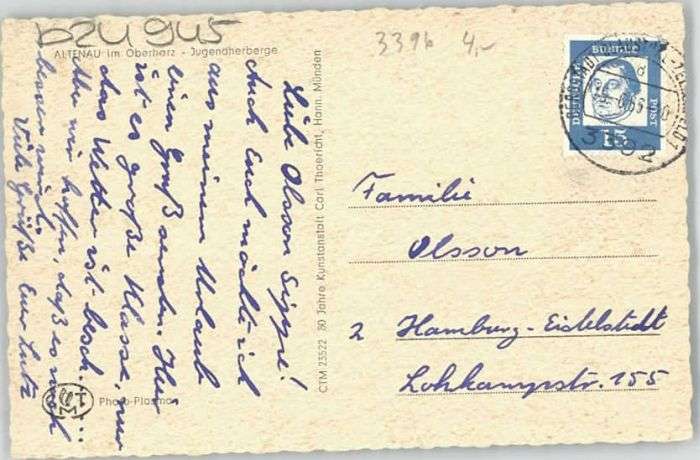 b24945
3396 4,-
ALTENAU im Oberharz - Jugendherberge
Liebe Olsson Sippe!
Auch Euch möchte ich
aus meinem Urlaub
einen Gruß senden. Hier
ist es große Klasse, nur
das Wetter ist besch....
Aber wir hoffen, daß es noch
besser wird.
Viele Grüße Euer Lutz
Photo-Plasmon
CTM 23522 80 Jahre Kunstanstalt Carl Thoericht, Hann. Münden
DEUTSCHE
BUNDES
POST
15
3392
Familie
Olsson
2 Hamburg-Eidelstedt
Lohkampstr. 155